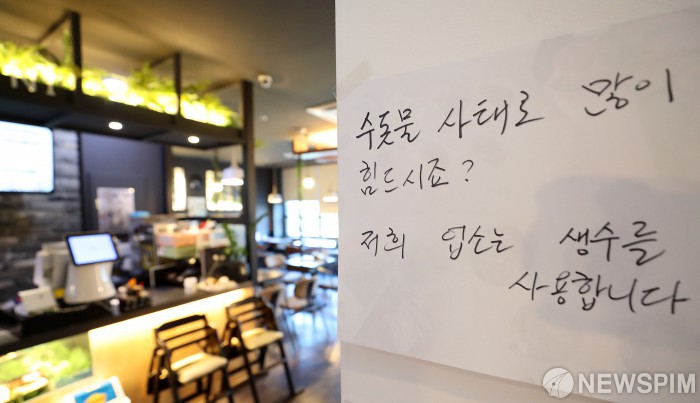 수돗물 사태로 많이
힘드시죠?
저희 업소는 생수를
사용합니다
NEWSPIM